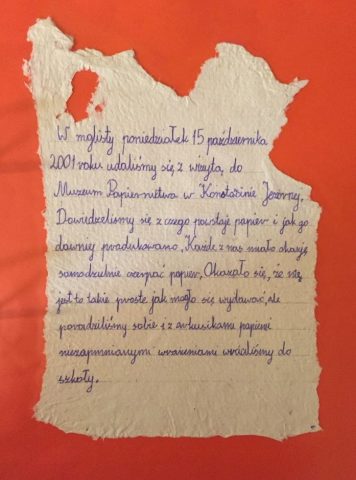 W mglisty poniedziałek 15 października
2001 roku udaliśmy się z wizytą do
Muzeum Papiernictwa w Konstancinie Jeziornej.
Dowiedzieliśmy się z czego powstaje papier i jak go
dawniej produkowano. Każde z nas miało okazję
samodzielnie czerpać papier. Okazało się, że nie
jest to takie proste jak mogło się wydawać, ale
poradziliśmy sobie i z arkusikami papieru
niezapomnianymi wrażeniami wróciliśmy do
szkoły.